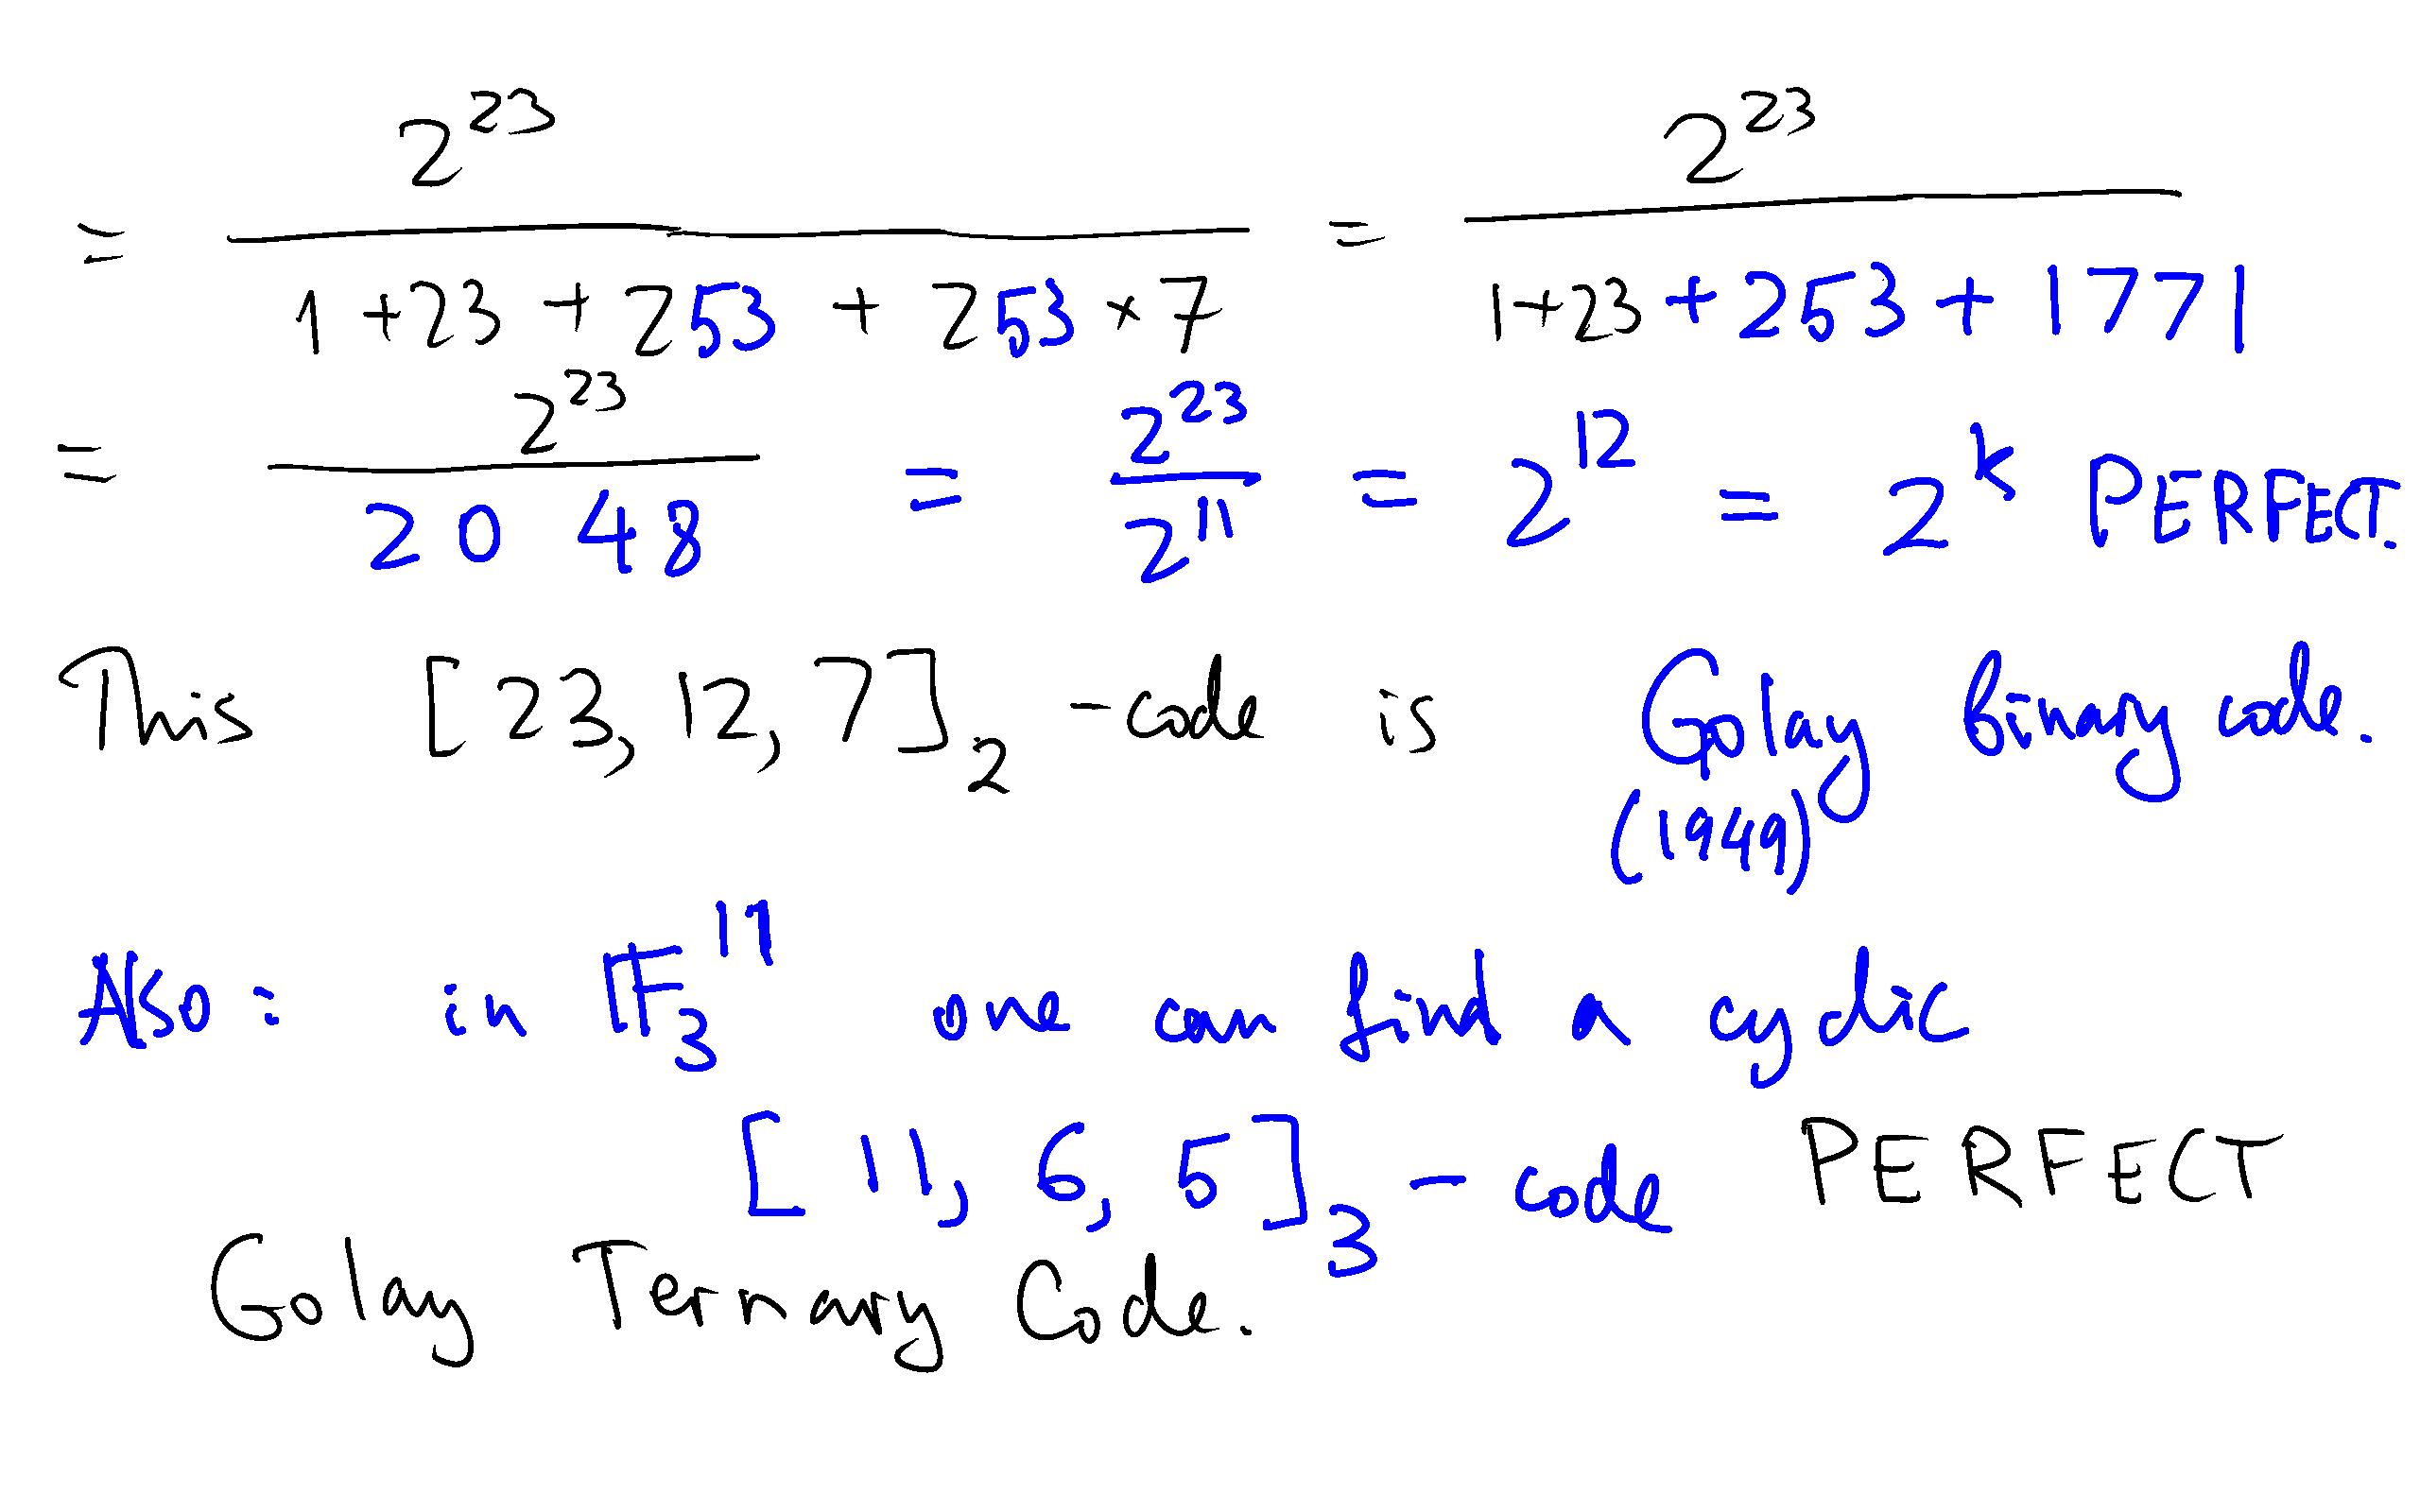 = 2^23 / (1 + 23 + 253 + 253 × 7) = 2^23 / (1 + 23 + 253 + 1771)
= 2^23 / 2048 = 2^23 / 2^11 = 2^12 = 2^k PERFECT.
This [23, 12, 7]_2 - code is Golay binary code.
(1949)
Also: in 𝔽_3^11 one can find a cyclic
[11, 6, 5]_3 - code PERFECT
Golay Ternary Code.